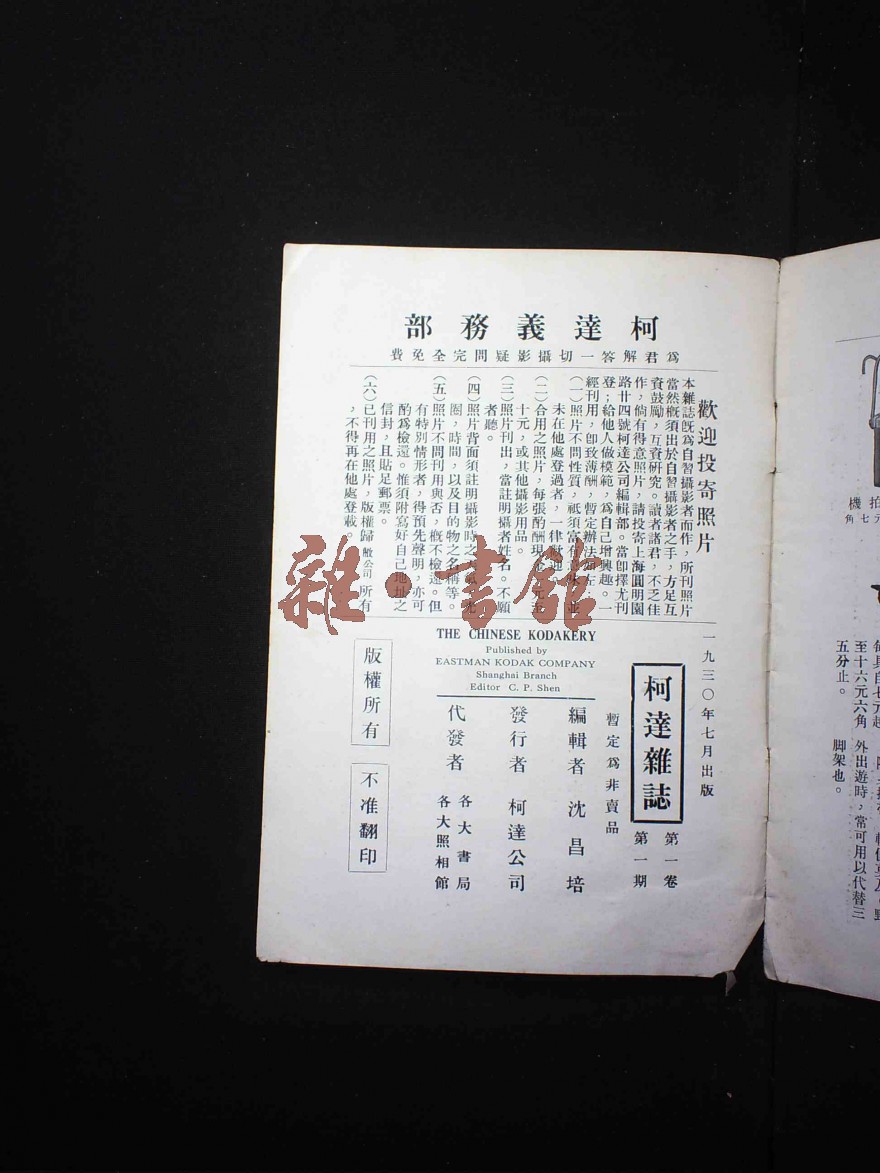 柯達義務部
為君解答一切攝影疑問完全免費
歡迎投寄照片
本雜誌旣為自習攝影者而作，所刊照片
當然槪須出於自習攝影者之手，方足互
資鼓勵，互資硏究。讀者諸君，不乏佳
作，倘有得意照片，請投寄上海圓明園
路廿四號柯達公司編輯部。當卽擇尤刊
登；給他人做模範，為自己增興趣。一
經刊用，卽致薄酬，暫定辦法如左
（一）照片不問性質，祇須富有意味，並
未在他處登過者，一律歡迎。
（二）合用之照片，每張酌酬現金
十元，或其他攝影用品。
（三）照片刊出，當註明攝者姓名。不願
者聽。
（四）照片背面須註明攝影時之
圈，時間，以及目的物之名稱等。
（五）照片不問刊用與否，槪不檢還。但
有特別情形者，得預先聲明，亦可
酌為檢還。惟須附寫好自己地址之
信封，且貼足郵票。
（六）已刊用之照片，版權歸敝公司所有
，不得再在他處登載。
雜·書館
一九三〇年七月出版
柯達雜誌
第一卷
第一期
暫定為非賣品
THE CHINESE KODAKERY
Published by
EASTMAN KODAK COMPANY
Shanghai Branch
Editor C. P. Shen
編輯者 沈昌培
發行者 柯達公司
代發者 各大書局
各大照相館
版權所有
不准翻印
拍機
元七角
至十六元六角
五分止。
外出遊時，常可用以代替三
脚架也。